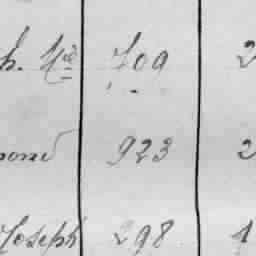 h. Mie 709 2
mond 923 2
Joseph 298 1